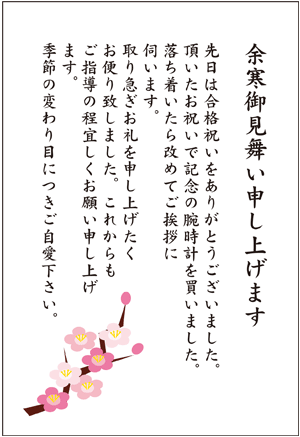 余寒御見舞い申し上げます
先日は合格祝いをありがとうございました。
頂いたお祝いで記念の腕時計を買いました。
落ち着いたら改めてご挨拶に
伺います。
取り急ぎお礼を申し上げたく
お便り致しました。これからも
ご指導の程宜しくお願い申し上げ
ます。
季節の変わり目につきご自愛下さい。